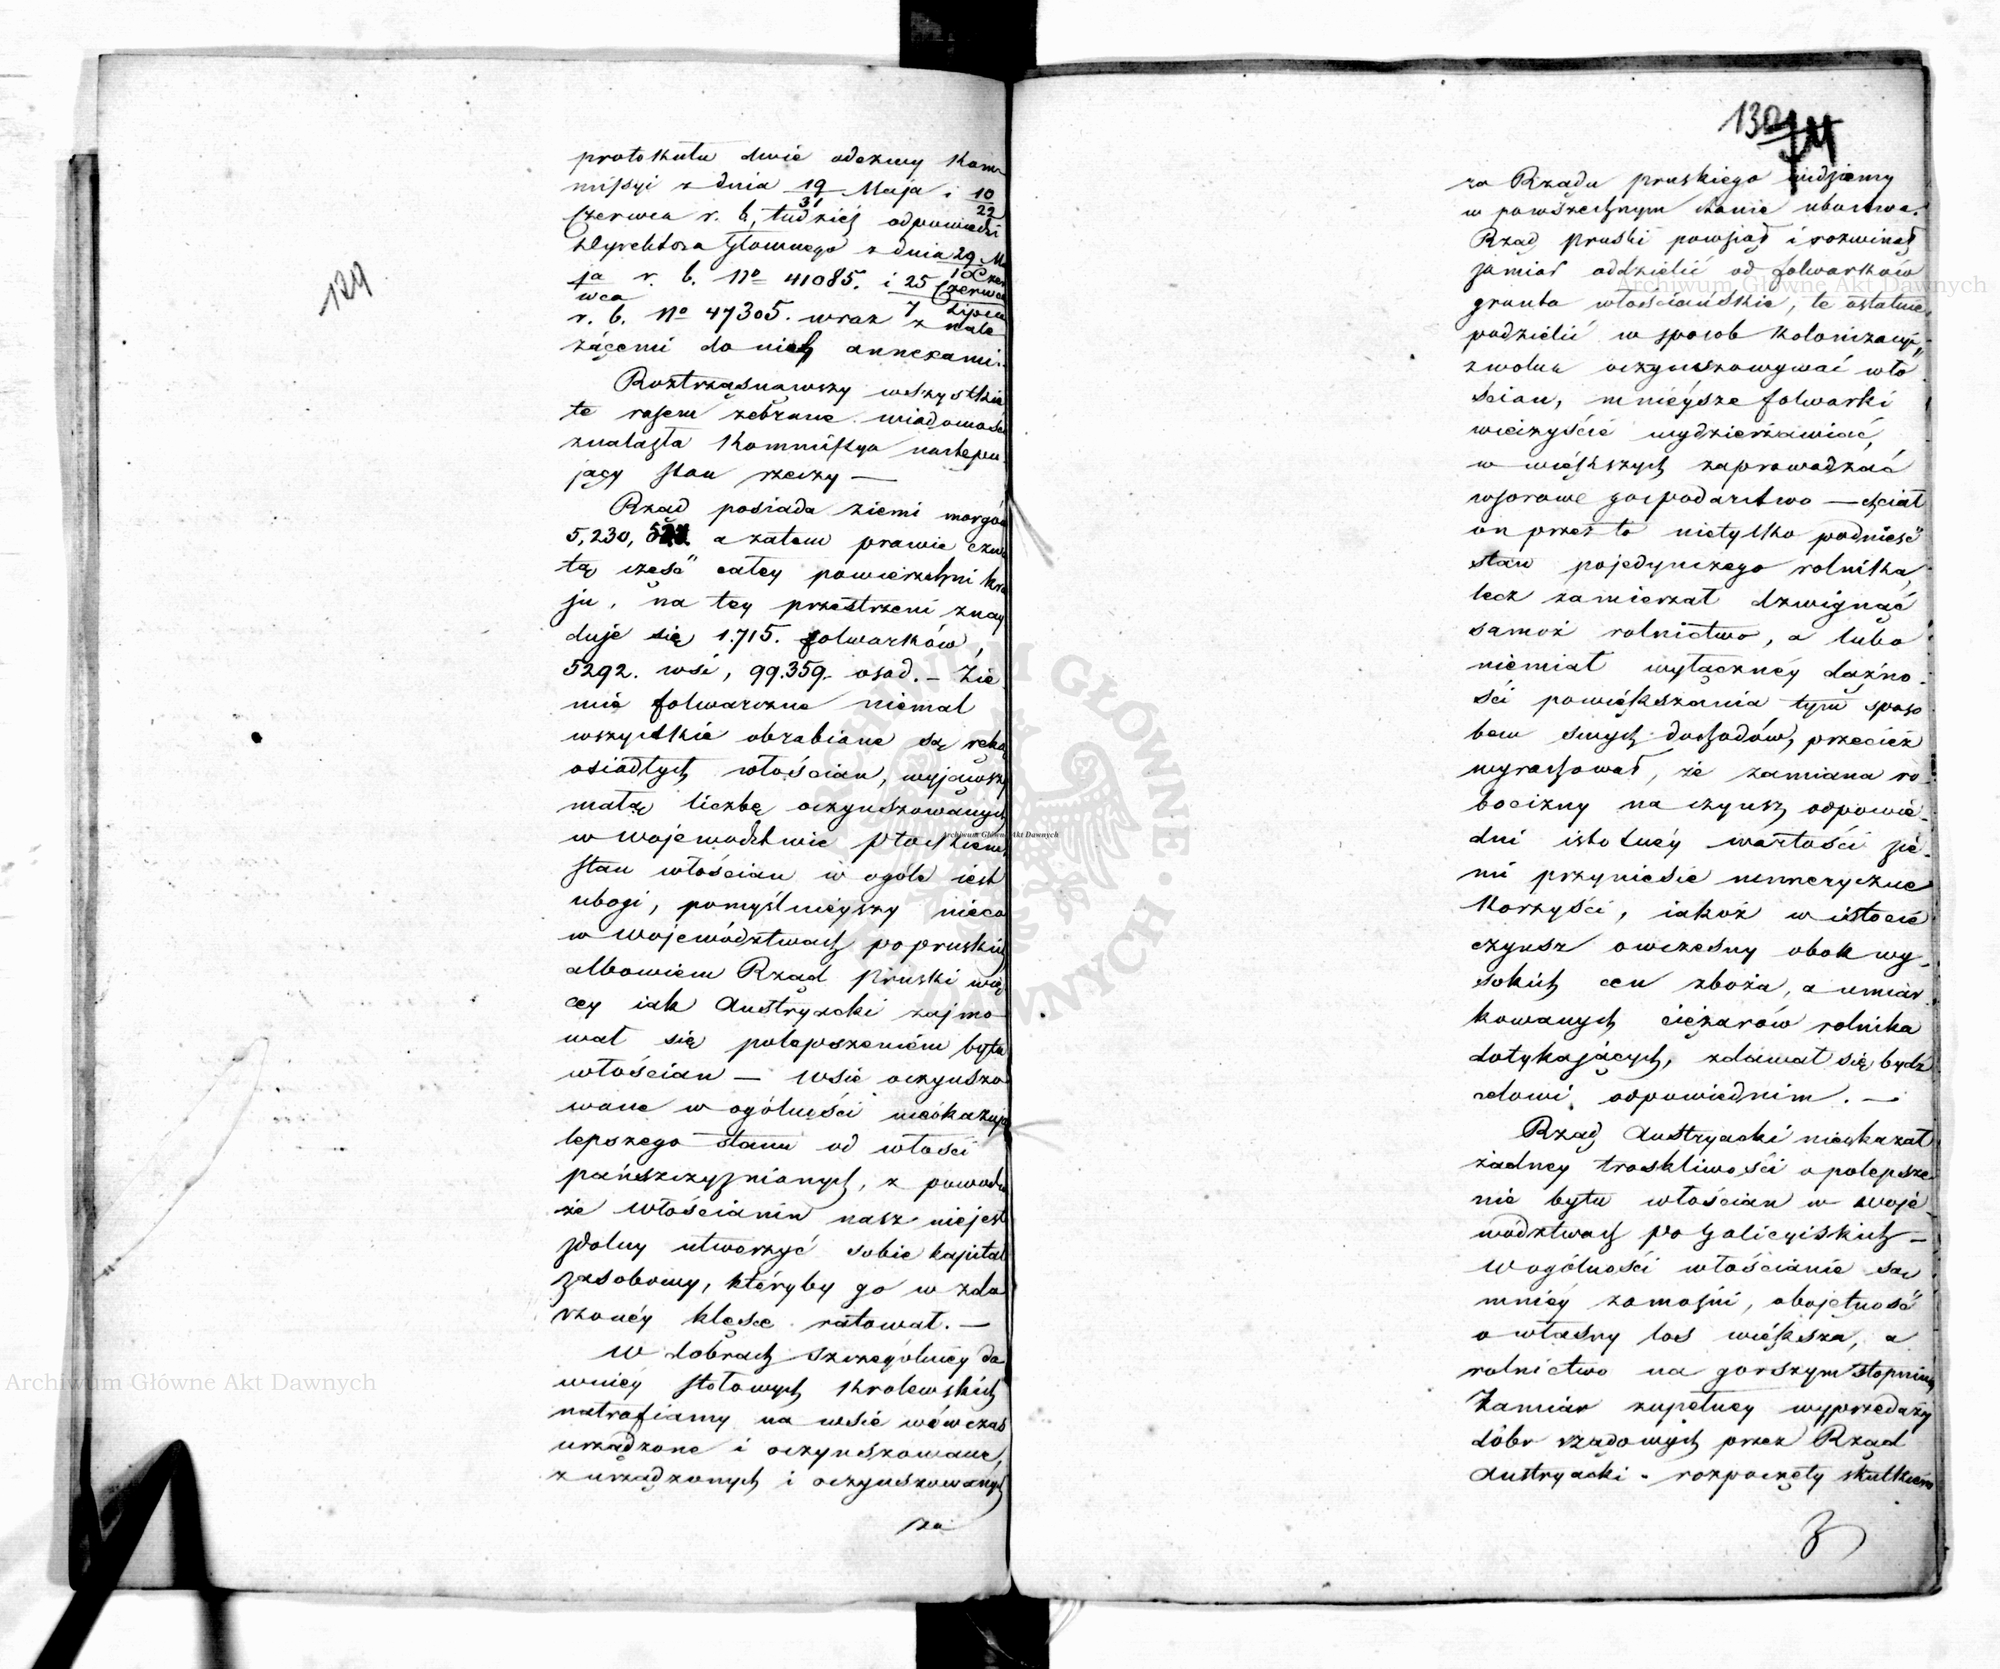 129
protokułu dwie odezwy Kom
missyi z dnia 19/31 Maja i 10/22
Czerwca r. b, tudzież odpowiedzi
Dyrektora Głównego z dnia 29 Ma
ja r. b. No 41085. i 25 Czerwca
wca 10 Czer
r. b. No 47305. wraz z 7 Lipca nale
żącemi do nich annexami.
Roztrząsnąwszy wszystkie
te razem zebrane wiadomości
znalazła Kommissya następu
jący stan rzeczy —
Rząd posiada ziemi morgów
5,230, a zatem prawie czwar
tą część całey powierzchni kra
ju, na tey przestrzeni znay
duje się 1.715. folwarków,
5292. wsi, 99.359. osad. – Zie
mie folwarczne niemal
wszystkie obrabiane są ręką
osiadłych włościan, wyjąwszy
małą liczbę oczynszowanych
w Województwie Płockiem
stan włościan w ogóle iest
ubogi, pomyślnieyszy nieco
w Województwach popruskich
albowiem Rząd Pruski wię
cey iak Austryacki zajmo
wał się polepszeniem bytu
włościan — Wsie oczynszo
wane w ogólności nieokazują
lepszego stanu od włości
pańszczyznianych, z powodu
że włościanin nasz niejest
zdolny utworzyć sobie kapitał
zasobowy, któryby go w zda
rzonéy klęsce ratował. —
W dobrach szczególniey da
wniey stołowych Królewskich
natrafiamy na wsie wówczas
urządzone i oczynszowane,
z urządzonych i oczynszowanych
za
130
za Rządu pruskiego widziemy
w powszechnym stanie ubóstwa.
Rząd pruski powziął i rozwinął
zamiar oddzielić od folwarków
grunta włościańskie, te ostatnie
podzielić w sposób Kolonizacyi,
zwolna oczynszowywać wło
ścian, mnieysze folwarki
wieczyście wydzierżawiać,
w większych zaprowadzać
wzorowe gospodarstwo — chciał
on przez to nietylko podnieść
stan pojedynczego rolnika,
lecz zamierzał dzwignąć
samoż rolnictwo, a lubo
niemiał wyłącznéy dążno-
ści powiększania tym sposo
bem swych dochodów, przecież
wyrachował, że zamiana ro
bocizny na czynsz odpowie-
dni istotnéy wartości zie-
mi przyniesie numeryczne
Korzyści, iakoż w istocie
czynsz owczesny obok wy-
sokich cen zboża, a umiar
kowanych ciężarów rolnika
dotykających, zdawał się bydź
celowi odpowiednim. —
Rząd Austryacki nieukazał
żadney troskliwości o polepsze
nie bytu włościan w Woje
wództwach po Galicyiskich —
W ogólności włościanie są
mniéy zamożni, obojętność
o własny los większa, a
rolnictwo na gorszym stopniu
Zamiar zupełney wyprzedaży
dóbr rządowych przez Rząd
Austryacki – rozpoczęty skutkiem
Archiwum Główne Akt Dawnych
Archiwum Główne Akt Dawnych
Archiwum Główne Akt Dawnych
ARCHIWUM GŁÓWNE AKT DAWNYCH